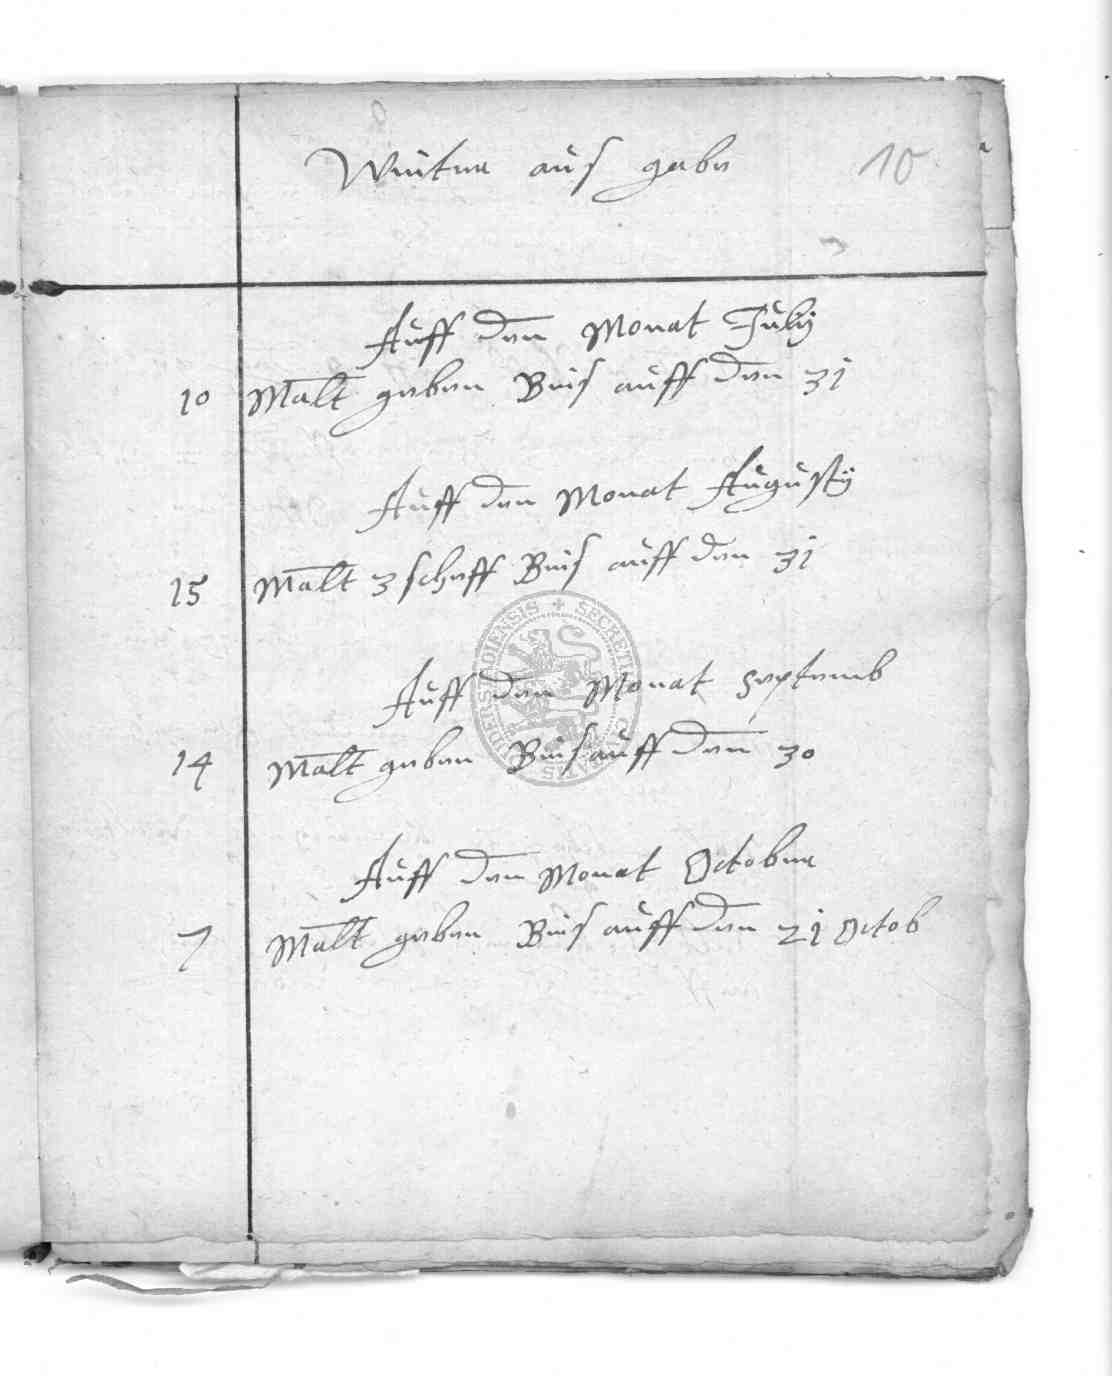 Weiter aus gabe 10
Auff den Monat July
10 Malt geben Beis auff den 31
Auff den Monat Augusty
15 Malt 3 scheff Beis auff den 31
Auff den Monat Septemb
14 Malt geben Beis auff den 30
Auff den Monat October
7 Malt geben Beis auff den 21 Octob